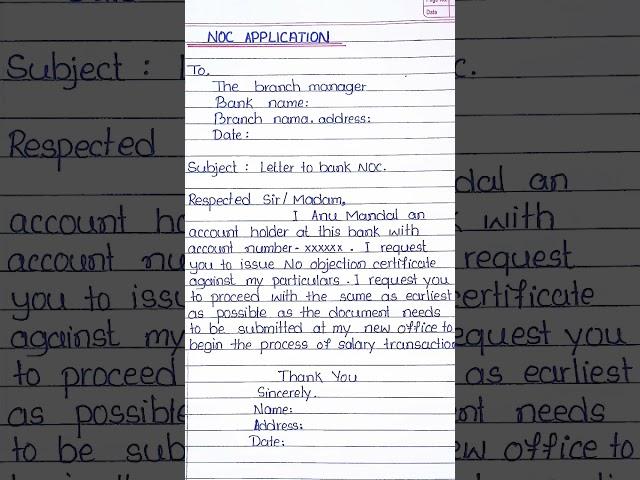 Date
NOC APPLICATION
To,
The branch manager
Bank name:
Branch nama. address:
Date:
Subject : Letter to bank NOC.
Respected Sir/ Madam,
I Anu Mandal an
account holder at this bank with
account number- xxxxxx . I request
you to issue No objection certificate
against my particulars . I request you
to proceed with the same as earliest
as possible as the document needs
to be submitted at my new office to
begin the process of salary transaction
Thank You
Sincerely.
Name:
Address:
Date: